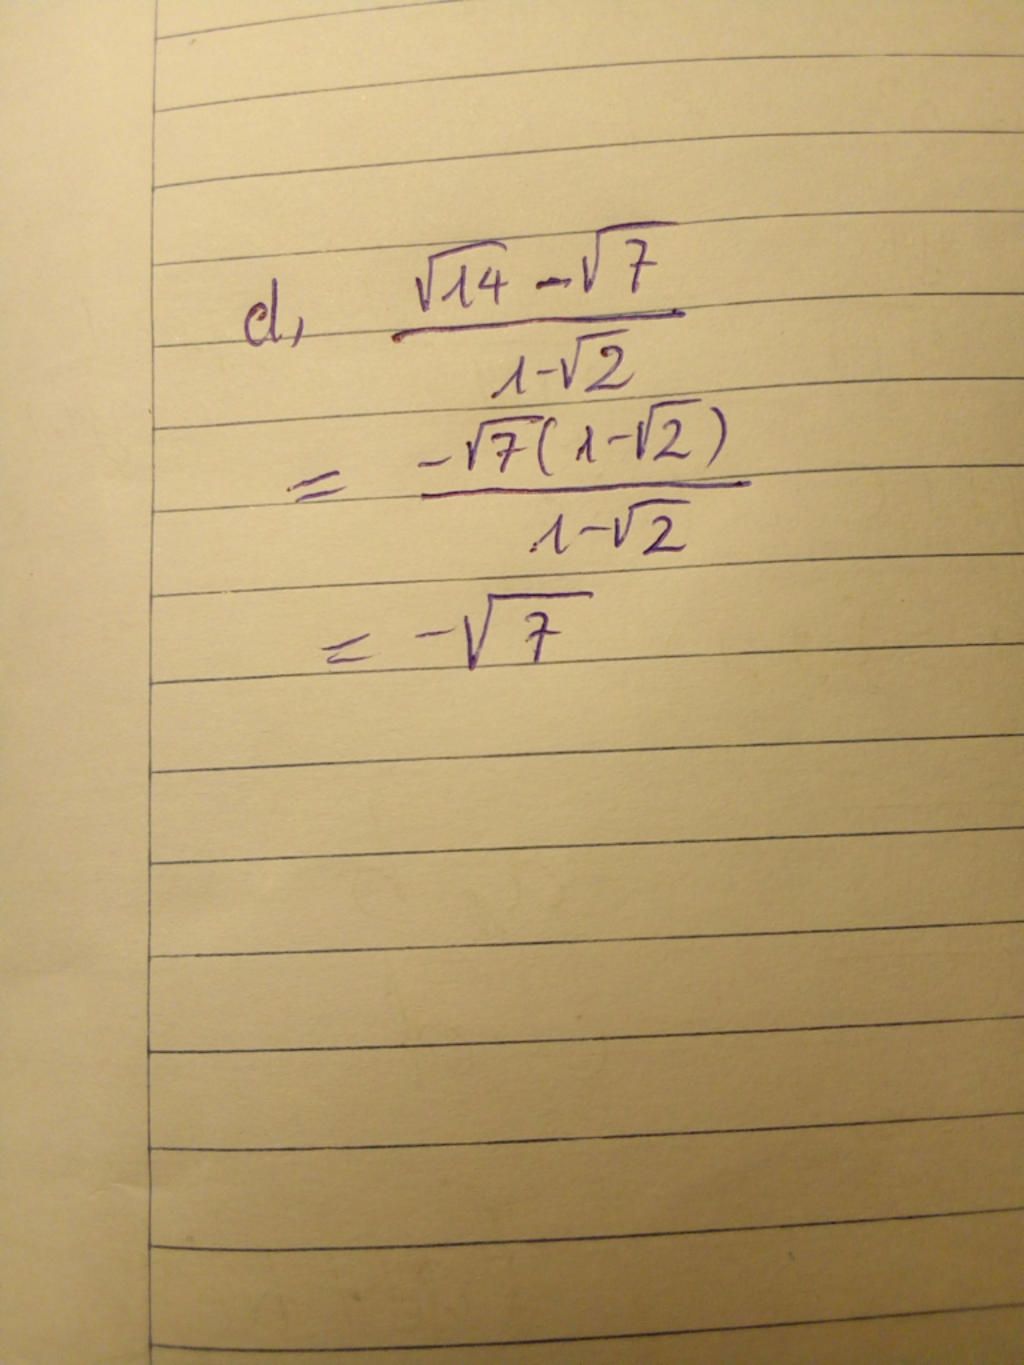 d, \frac{\sqrt{14} - \sqrt{7}}{1-\sqrt{2}}
= \frac{-\sqrt{7}(1-\sqrt{2})}{1-\sqrt{2}}
= -\sqrt{7}